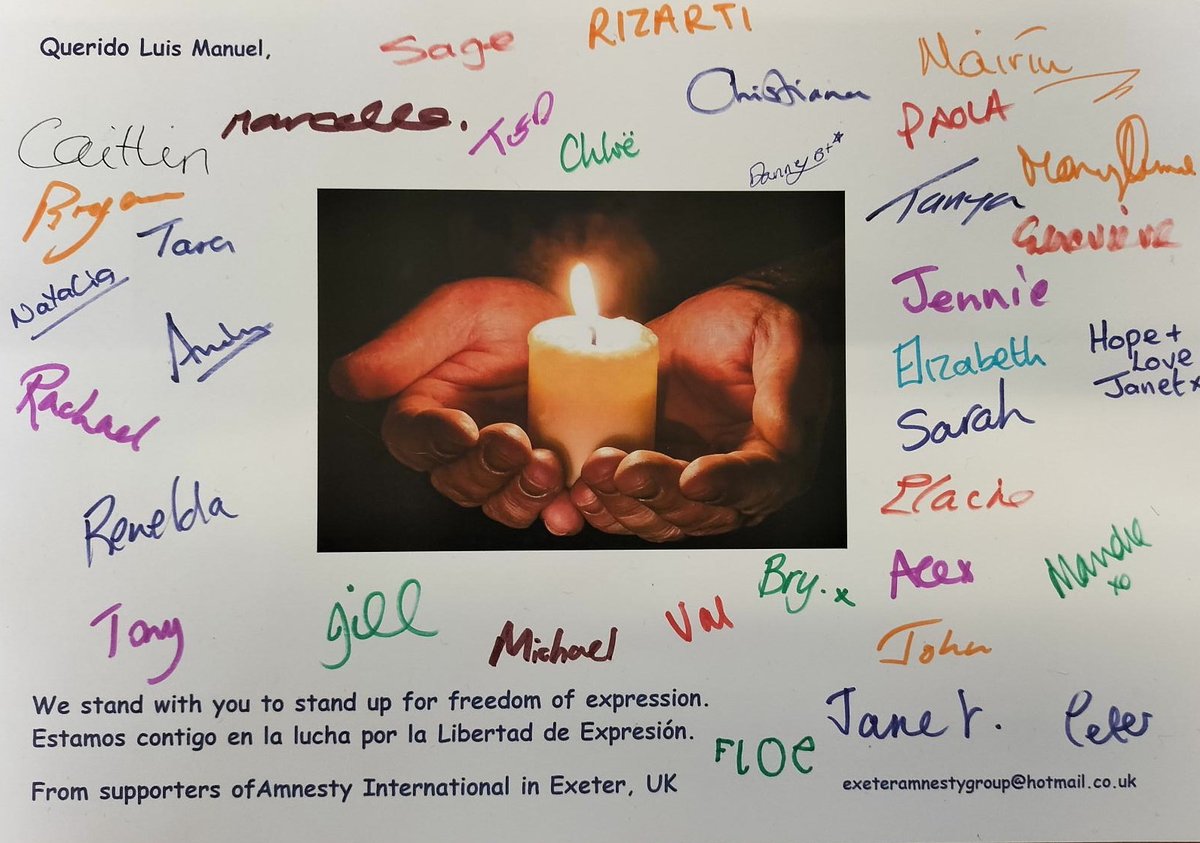 Querido Luis Manuel,
Sage
RIZARTI
Máirín
Christiana
Marcello.
TSD
Chloë
PAOLA
Caitlin
Danny B+
Tanya
Bryan
Tara
Genevieve
Natalia
Jennie
Andy
Elizabeth
Hope +
Love
Janet x
Rachael
Sarah
Renelda
Alex
Mandie
xo
Bry. x
Tony
Jill
Michael
Val
John
We stand with you to stand up for freedom of expression.
Estamos contigo en la lucha por la Libertad de Expresión.
Janet.
Peter
FlOE
From supporters ofAmnesty International in Exeter, UK
exeteramnestygroup@hotmail.co.uk